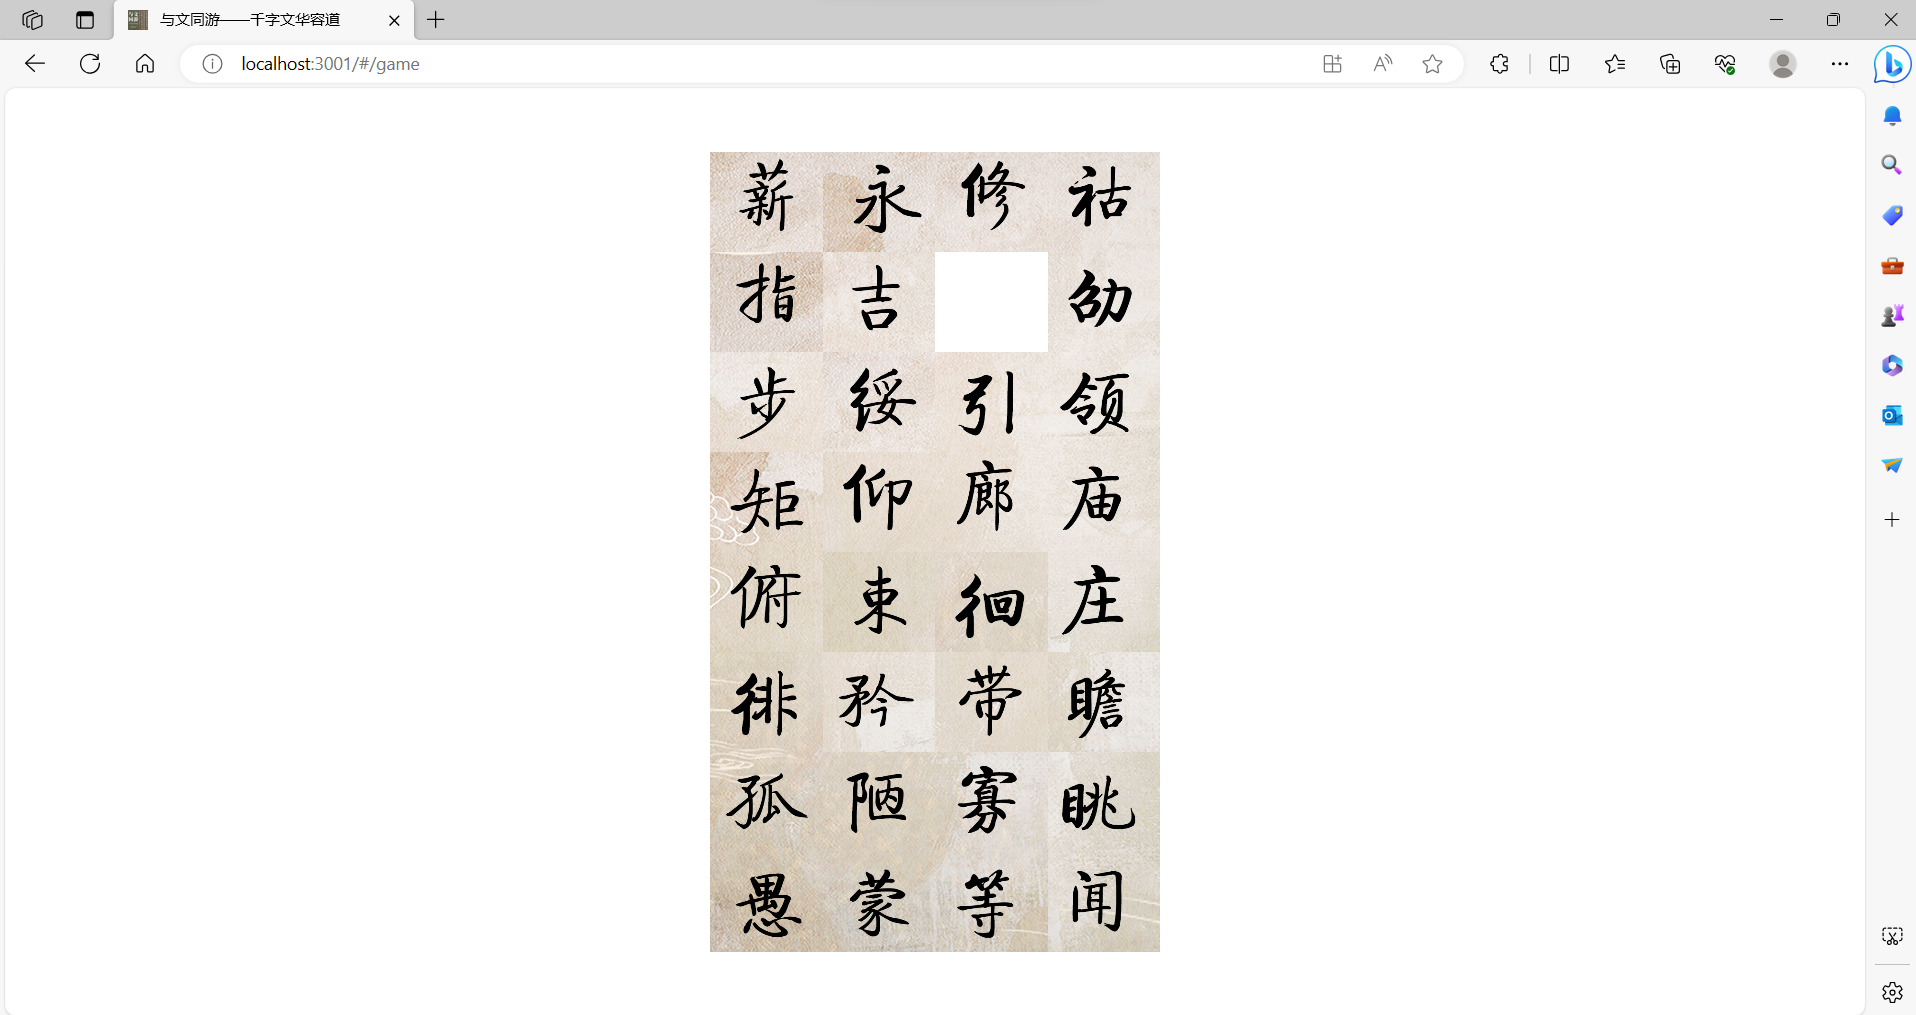 与文同游——千字文华容道
localhost:3001/#/game
薪永修祜
指吉劭
步绥引领
矩仰廊庙
俯束徊庄
徘矜带瞻
孤陋寡眺
愚蒙等闻